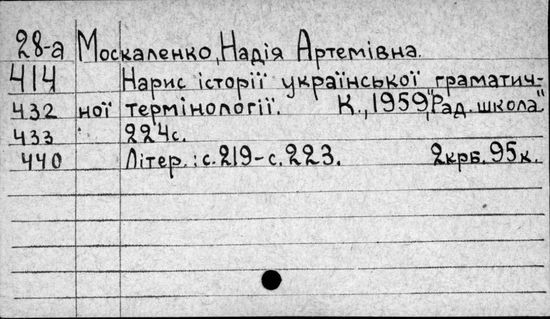 28-а Москаленко, Надія Артемівна.
414 Нарис історії української граматич-
432 ної термінології. К., 1959, „Рад. школа"
433 224с.
440 Літер.: с. 219-с. 223. 2крб. 95к.